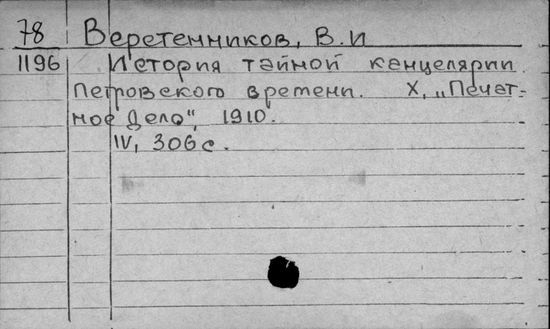 78 Веретенников, В.И
1196 История тайной канцелярии
Петровского времени. Х, „Печат-
ное Дело", 1910.
IV, 306 с.